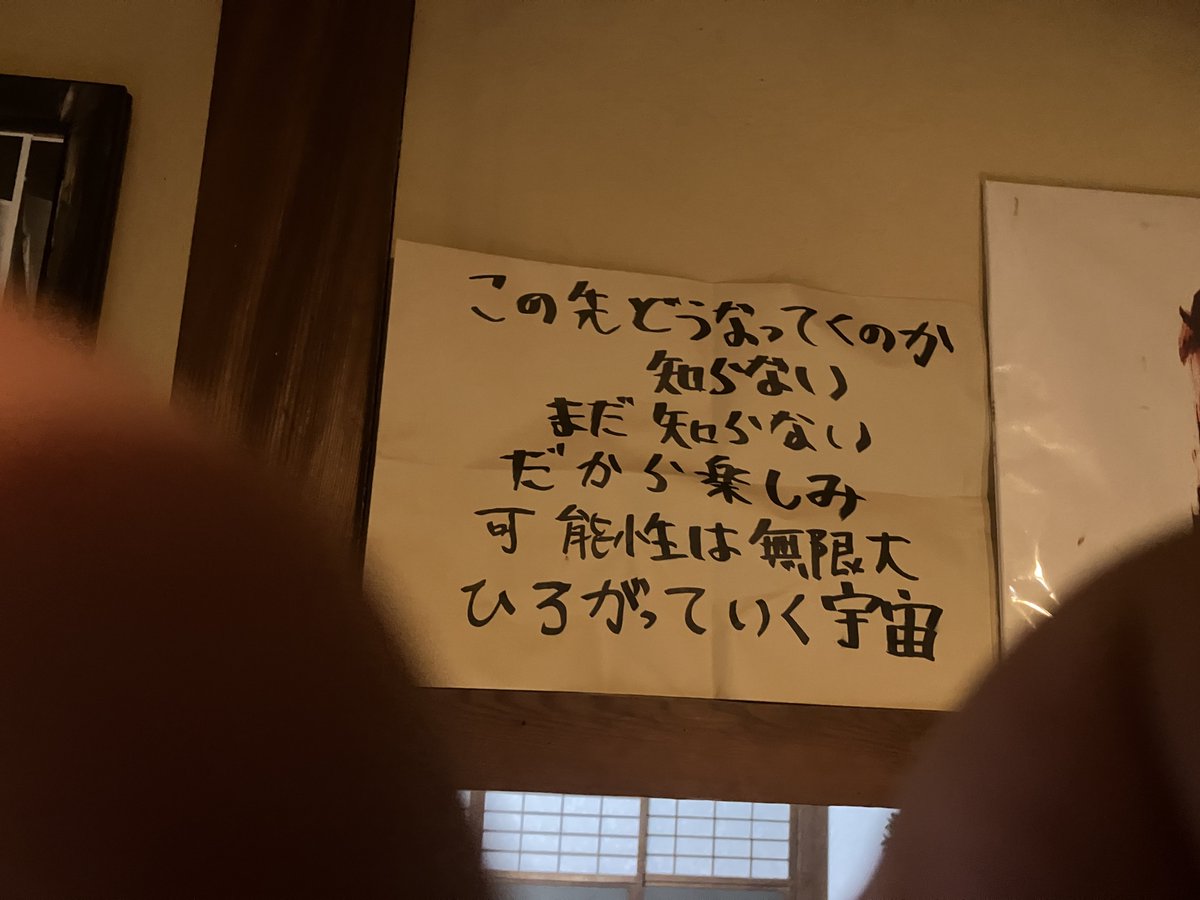 この先どうなってくのか
知らない
まだ知らない
だから楽しみ
可能性は無限大
ひろがっていく宇宙